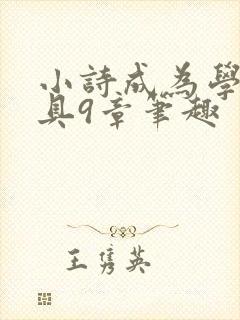 小詩成為學
具9章筆趣
王雋英